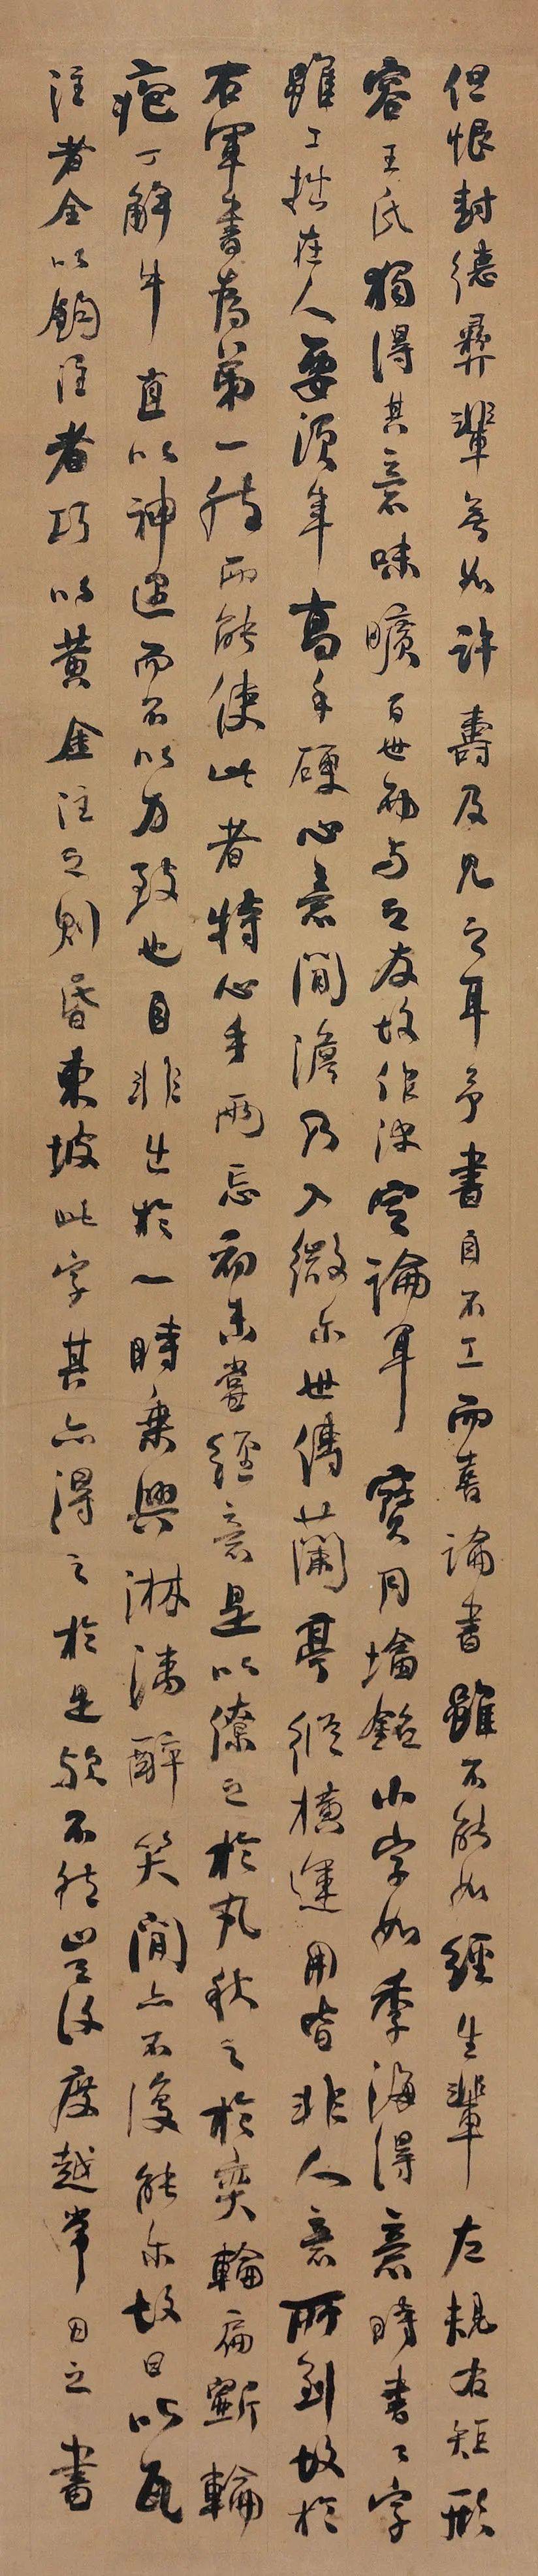 但恨封德彝輩無如許壽及見之耳予書自不工而喜論書雖不能如經生輩左規右矩形
容王氏獨得其意味曠百世而与之友故作决定論耳寳月塔銘小字如季海得意時書書字
雖工拙在人要須年高手硬心意閒澹乃入微尔世傳蘭亭縱橫運用皆非人意所到故於
右軍書為第一然而能使此者特心手兩忘初未嘗經意是以僚之於丸秋之於奕輪扁斲輪
庖丁解牛直以神遇而不以力致也自非出於一時乘興淋漓醉笑閒亦不復能尔故曰以瓦
注者全以鉤注者巧以黃金注之則昏東坡此字其亦得之於是歟不然豈復度越常日之書